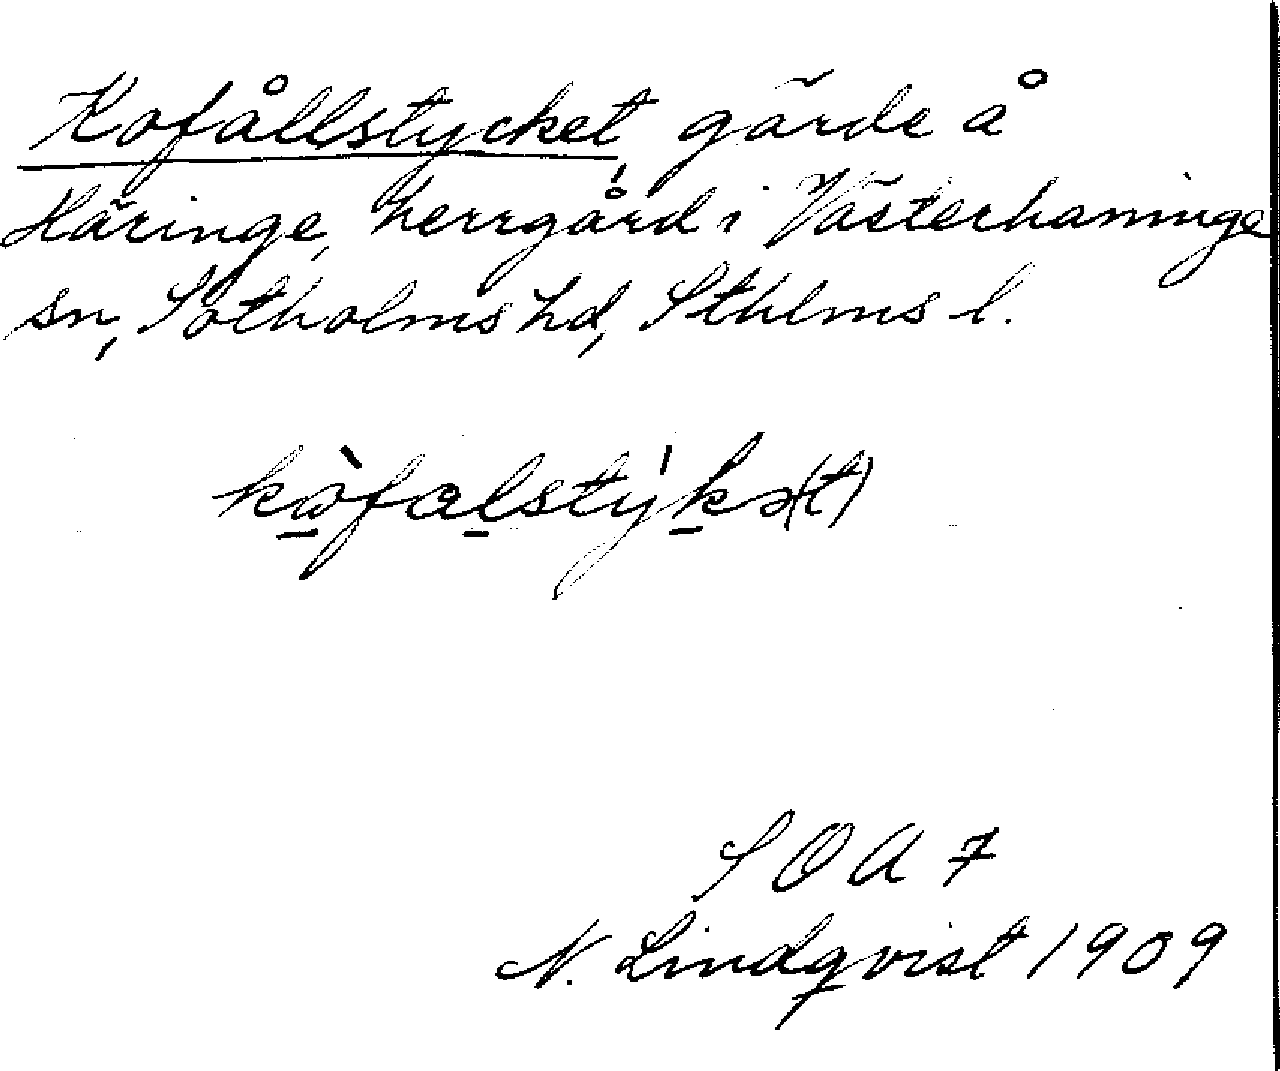 Kofållstycket, gärde å
Häringe, herrgård i Västerhaninge
sn, Sotholms hd, Sthlms l.
kòfalstýkə(t)
SOA 7
N. Lindqvist 1909